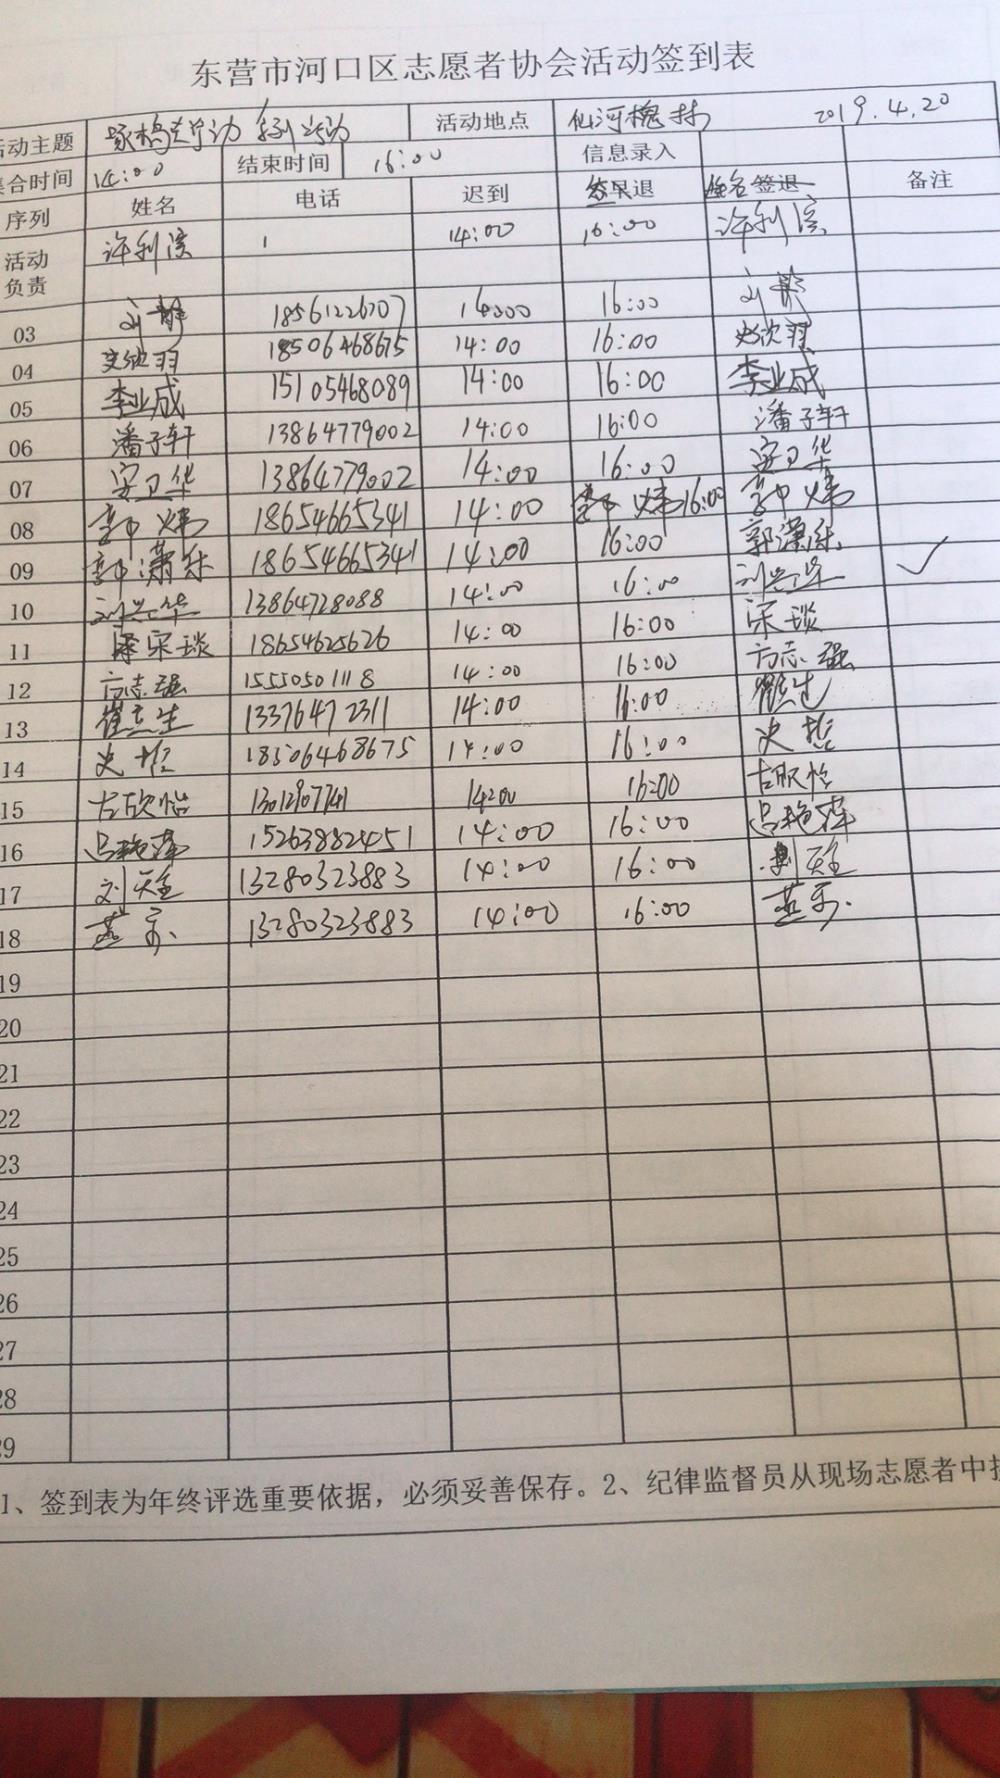 东营市河口区志愿者协会活动签到表
活动主题 活动 活动地点 仙河槐林 2019.4.20
集合时间 14:00 结束时间 16:00 信息录入
序列 姓名 电话 迟到 签早退 姓名签退 备注
活动负责 许利滨 14:00 16:00 许利滨
03 刘静 18561226707 14:00 16:00 刘静
04 史欣羽 18506468675 14:00 16:00 史欣羽
05 李业成 15105468089 14:00 16:00 李业成
06 潘子轩 13864779002 14:00 16:00 潘子轩
07 安卫华 13864779002 14:00 16:00 安卫华
08 郭炜 18654665341 14:00 郭炜 16:00 郭炜
09 郭潇乐 18654665341 14:00 16:00 郭潇乐 ✓
10 刘兴华 13864728088 14:00 16:00 刘兴华
11 宋琰 18654625626 14:00 16:00 宋琰
12 方志强 15550501118 14:00 16:00 方志强
13 崔志生 13376472311 14:00 16:00
14 史哲 18506468675 14:00 16:00 史哲
15 古欣怡 14:00 16:00 古欣怡
16 吕艳萍 15263882451 14:00 16:00 吕艳萍
17 刘天全 13280323883 14:00 16:00 刘天全
18 13280323883 14:00 16:00
19
20
21
22
23
24
25
26
27
28
29
1、签到表为年终评选重要依据，必须妥善保存。2、纪律监督员从现场志愿者中